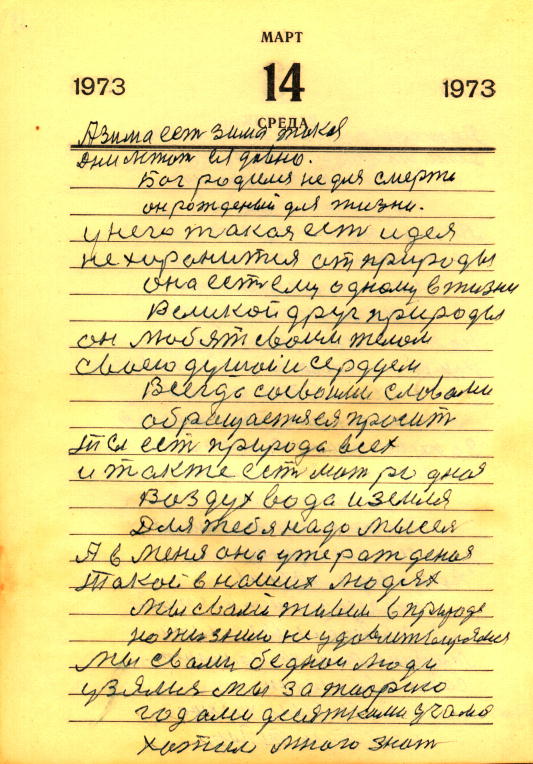 МАРТ
1973 14 1973
СРЕДА
А зима ест зима такая
дни
давно.
Бог родился не для смерти
он рожденый для жизни.
у него такая ест идея
не хоранится от природы
она ест ему одному в жизни
Великой друг природы
он любят своим телом
своею душой и сердцем
Всегда со своими словами
обращается просит
Ты ест природа всех
и также ест мат родная
Воздух вода и земля
Для тебя надо мысел
А в меня она уже ражденая
Такой в наших людях
мы свами живем в природе
но жизнию не
мы свами бедной люди
узялис мы за
годами десятками
хотим много знат